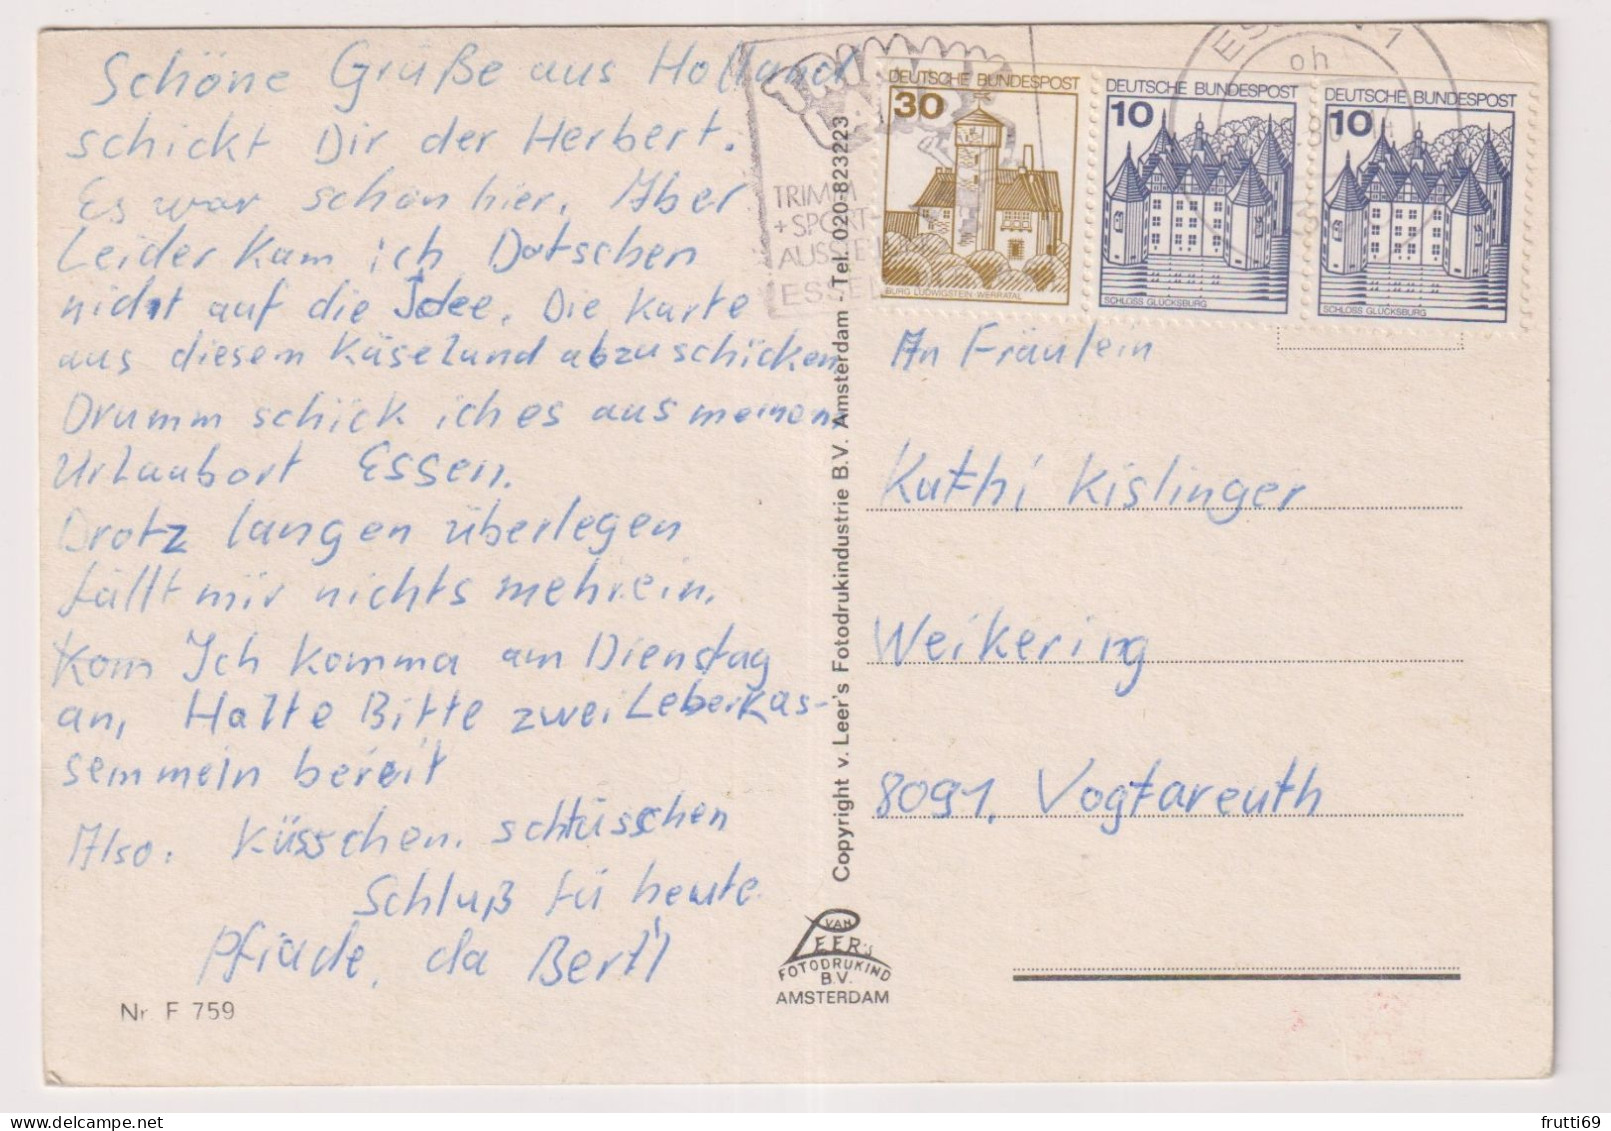 Schöne Grüße aus Holland
schickt Dir der Herbert.
Es war schön hier. Aber
Leider kam ich Dotschen
nicht auf die Idee. Die Karte
aus diesem Käseland abzuschicken
Drumm schick ich es aus meinem
Urlaubort Essen.
Drotz langen überlegen
fällt mir nichts mehr ein.
Kom Ich komma am Dienstag
an, Halte Bitte zwei Leberkas-
semmeln bereit
Also: Küsschen. schtüsschen
Schluß fü heute.
Pfiade, da Bertl
Nr. F 759
TRIMM
+ SPORT
ESSE
Copyright v. Leer's Fotodrukindustrie B.V. Amsterdam - Tel. 020-823223
VAN
LEER's
FOTODRUKIND
B.V.
AMSTERDAM
DEUTSCHE BUNDESPOST
30
BURG LUDWIGSTEIN WERRATAL
DEUTSCHE BUNDESPOST
10
SCHLOSS GLÜCKSBURG
DEUTSCHE BUNDESPOST
10
SCHLOSS GLÜCKSBURG
ES 1
oh
An Fräulein
Kathi Kislinger
Weikering
8091, Vogtareuth
frutti69